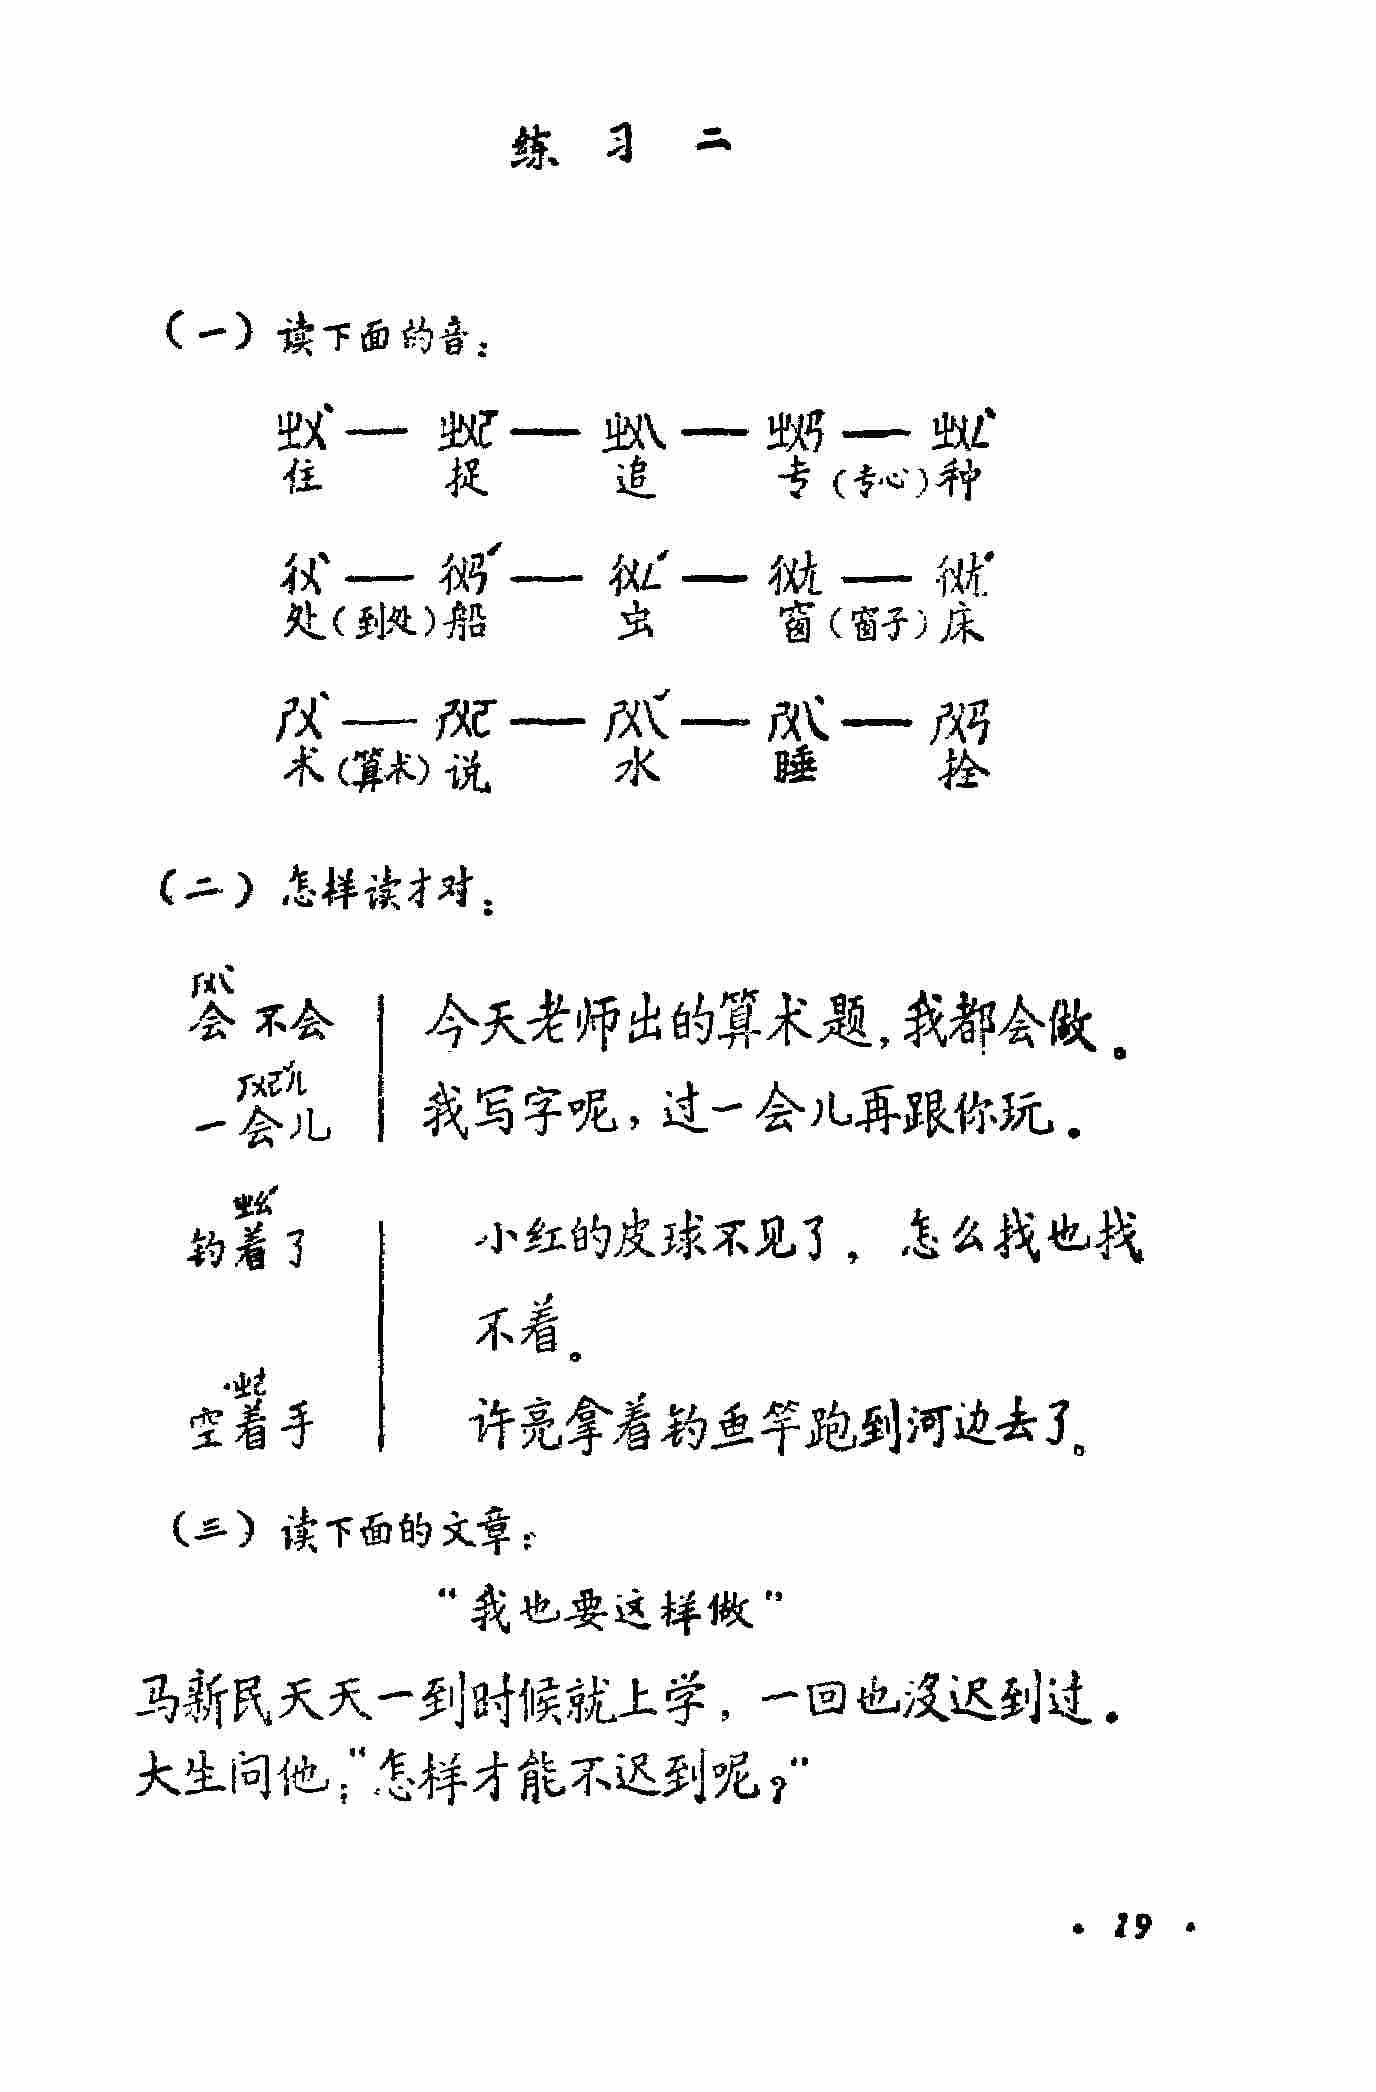 练习二
（一）读下面的音：
ㄓㄨˋ — ㄓㄨㄛ — ㄓㄨㄟ — ㄓㄨㄢ — ㄓㄨㄥˋ
住 捉 追 专（专心）种
ㄔㄨˋ — ㄔㄨㄢˊ — ㄔㄨㄥˊ — ㄔㄨㄤ — ㄔㄨㄤˊ
处（到处）船 虫 窗（窗子）床
ㄕㄨˋ — ㄕㄨㄛ — ㄕㄨㄟˇ — ㄕㄨㄟˋ — ㄕㄨㄢ
术（算术）说 水 睡 拴
（二）怎样读才对：
ㄏㄨㄟˋ
会不会 今天老师出的算术题，我都会做。
ㄏㄨㄜˇㄦ
一会儿 我写字呢，过一会儿再跟你玩．
ㄓㄠˊ
钓着了 小红的皮球不见了，怎么找也找
不着。
˙ㄓㄜ
空着手 许亮拿着钓鱼竿跑到河边去了。
（三）读下面的文章：
“我也要这样做”
马新民天天一到时候就上学，一回也没迟到过．
大生问他：“怎样才能不迟到呢？”
· 19 ·